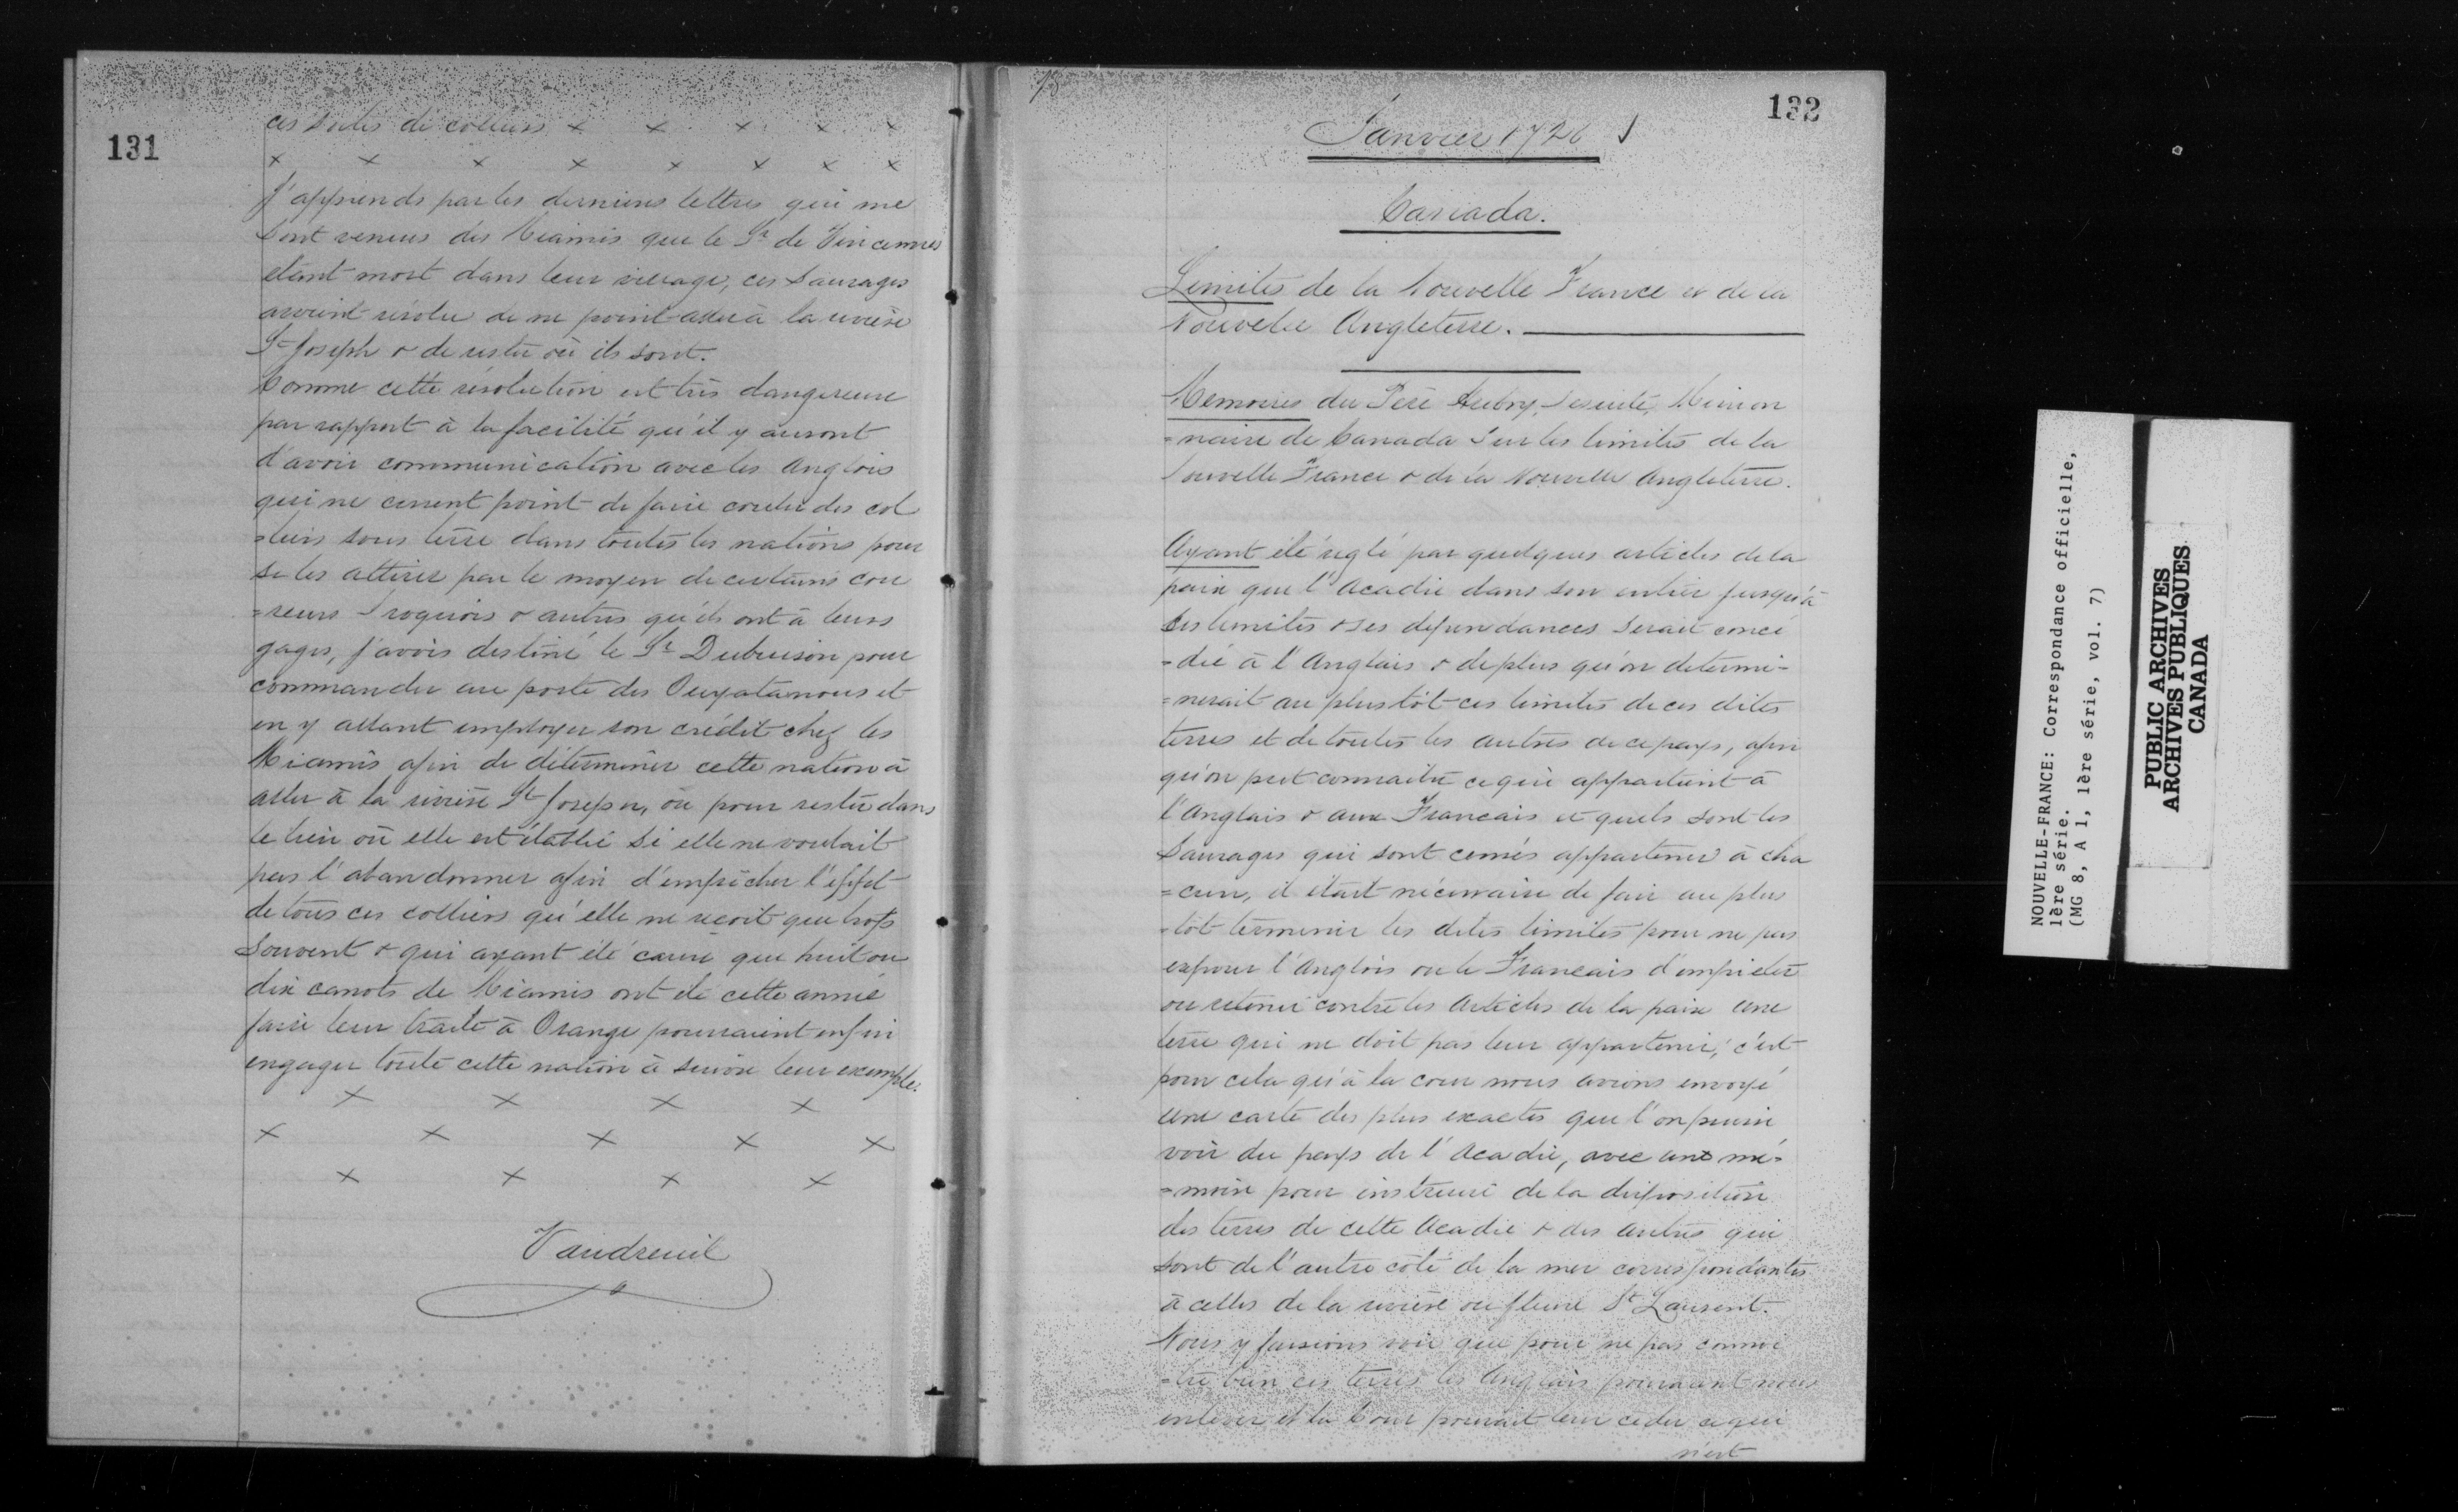 131
ces sortes de coliers × × × × ×
× × × × × × × ×
J'apprends par les dernieres lettres qui me
sont venues des Miamis que le Sr de Vincennes
etant mort dans leur village, ces Sauvages
avoient résolu de ne point aller à la rivière
St Joseph & de rester où ils sont.
Comme cette résolution est très dangereuse
par rapport à la facilité qu'il y auront
d'avoir communication avec les Anglois
qui ne cessent point de faire couler des col
=liers sous terre dans toutes les nations pour
se les attirer par le moyen de certains cou
=reurs Iroquois & autres qu'ils ont à leurs
gages, j'avois destiné le Sr Dubuisson pour
commander au poste des Ouyatanons et
en y allant employer son crédit chez les
Miamis afin de déterminer cette nation à
aller à la rivière St Joseph, ou pour rester dans
le lieu où elle est établie si elle ne voulait
pas l'abandonner afin d'empêcher l'effet
de tous ces colliers qu'elle ne reçoit que trop
souvent & qui ayant été cause que huit ou
dix canots de Miamis ont été cette année
faire leur traite à Orange pourraient enfin
engager toute cette nation à suivre leur exemple.
× × × ×
× × × × ×
× × × ×
Vaudreuil
132
Janvier 1720
Canada.
Limites de la Nouvelle France et de la
Nouvelle Angleterre.
Memoires du Père Aubry, Jesuite, Mission
=naire de Canada sur les limites de la
Nouvelle France & de la Nouvelle Angleterre.
Ayant été réglé par quelques articles de la
paix que l'Acadie dans son entier jusqu'à
ses limites & ses dépendances serait concé
=dée à l'Anglais & de plus qu'on determi-
=nerait au plustôt ces limites de ces dites
terres et de toutes les autres de ce pays, afin
qu'on put connaitre ce qui appartient à
l'Anglais & aux Francais et quels sont les
Sauvages qui sont censés appartenir à cha
=cun, il était nécessaire de faire au plus
-tôt terminer les dites limites pour ne pas
exposer l'Anglois ou le Francais d'empieter
ou retenir contre les Articles de la paix une
terre qui ne doit pas leur appartenir; c'est
pour cela qu'à la cour nous avions envoyé
une carte des plus exactes que l'on puisse
voir du pays de l'Acadie, avec un mé-
=moire pour instruire de la disposition
des terres de cette Acadie & des autres qui
sont de l'autre côté de la mer correspondantes
à celles de la rivière ou fleuve St Laurent.
Nous y faisions voir que pour ne pas connoi
=tre bien ces terres les Anglais pourraient nous
enlever et la Cour pourrait leur ceder ce qui
n'est
NOUVELLE-FRANCE: Correspondance officielle,
1ère série.
(MG 8, A 1, 1ère série, vol. 7)
PUBLIC ARCHIVES
ARCHIVES PUBLIQUES
CANADA